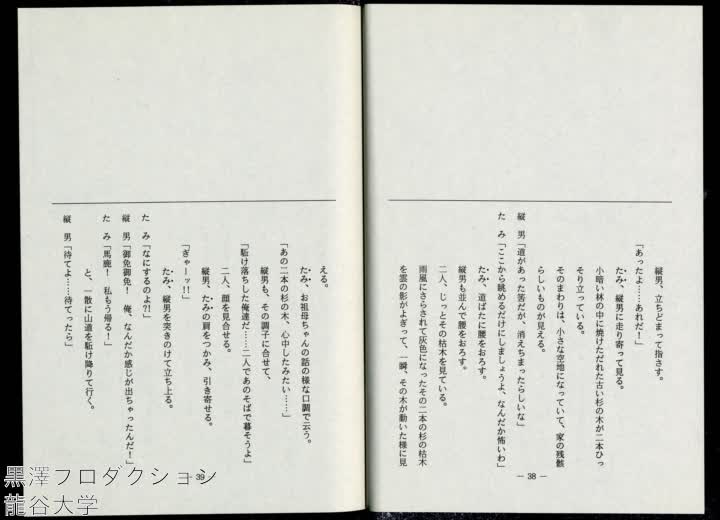 縦男、立ちどまって指さす。
「あったよ……あれだ！」
たみ、縦男に走り寄って見る。
小暗い林の中に焼けただれた古い杉の木が二本ひっ
そり立っている。
そのまわりは、小さな空地になっていて、家の残骸
らしいものが見える。
縦　男「道があった筈だが、消えちまったらしいな」
た　み「ここから眺めるだけにしましょうよ、なんだか怖いわ」
たみ、道ばたに腰をおろす。
縦男も並んで腰をおろす。
二人、じっとその枯木を見ている。
雨風にさらされて灰色になったその二本の杉の枯木
を雲の影がよぎって、一瞬、その木が動いた様に見
― 38 ―
える。
たみ、お祖母ちゃんの話の様な口調で云う。
「あの二本の杉の木、心中したみたい……」
縦男も、その調子に合せて、
「駈け落ちした俺達だ……二人であのそばで暮そうよ」
二人、顔を見合せる。
縦男、たみの肩をつかみ、引き寄せる。
「ぎゃーッ!!」
たみ、縦男を突きのけて立ち上る。
た　み「なにするのよ?!」
縦　男「御免御免！　俺、なんだか感じが出ちゃったんだ！」
た　み「馬鹿！　私もう帰る！」
と、一散に山道を駈け降りて行く。
縦　男「待てよ……待てったら」
39 ―
黒澤プロダクション
龍谷大学